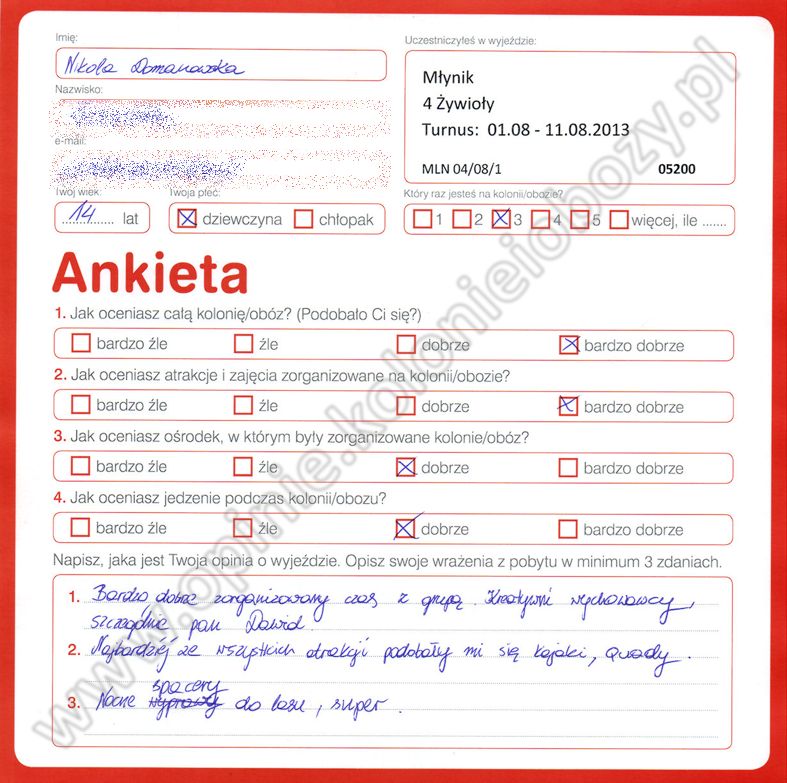 Imię:
Nikola Domanowska
Nazwisko:
e-mail:
Twój wiek:
14 lat
Twoja płeć:
dziewczyna chłopak
Uczestniczyłeś w wyjeździe:
Młynik
4 Żywioły
Turnus: 01.08 - 11.08.2013
MLN 04/08/1 05200
Który raz jesteś na kolonii/obozie?
1 2 3 4 5 więcej, ile .......
Ankieta
1. Jak oceniasz całą kolonię/obóz? (Podobało Ci się?)
bardzo źle źle dobrze bardzo dobrze
2. Jak oceniasz atrakcje i zajęcia zorganizowane na kolonii/obozie?
bardzo źle źle dobrze bardzo dobrze
3. Jak oceniasz ośrodek, w którym były zorganizowane kolonie/obóz?
bardzo źle źle dobrze bardzo dobrze
4. Jak oceniasz jedzenie podczas kolonii/obozu?
bardzo źle źle dobrze bardzo dobrze
Napisz, jaka jest Twoja opinia o wyjeździe. Opisz swoje wrażenia z pobytu w minimum 3 zdaniach.
1. Bardzo dobrze zorganizowany czas z grupą. Kreatywni wychowawcy,
szczególnie pan Dawid.
2. Najbardziej ze wszystkich atrakcji podobały mi się kajaki, quady.
spacery
3. Nocne wyprawy do lasu, super.
www.opinie.kolonieiobozy.pl